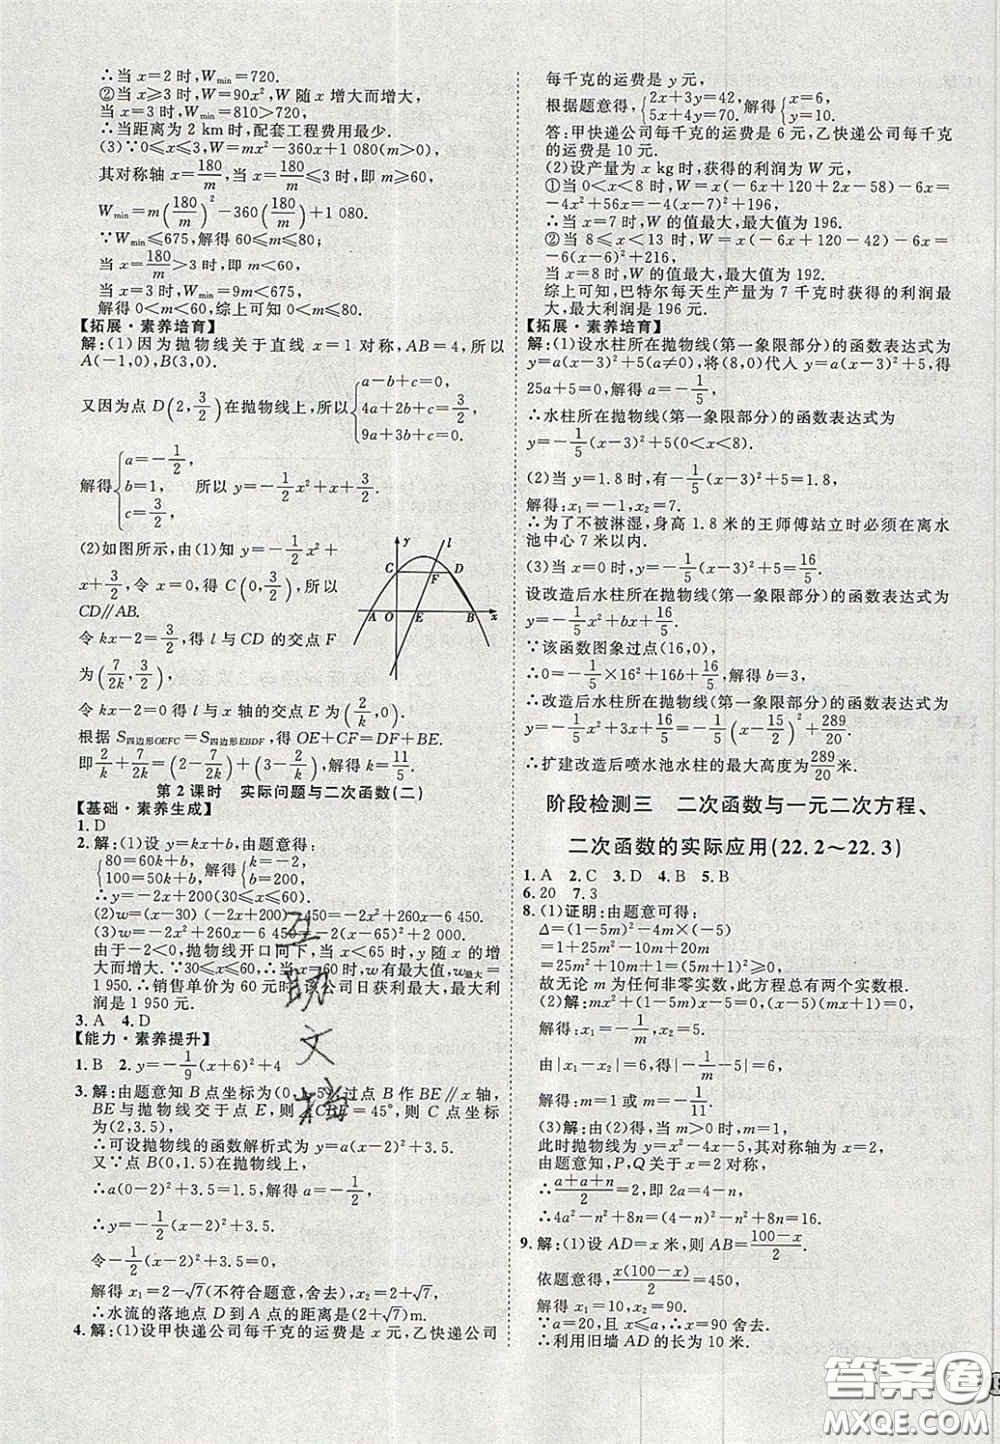 ∴当 x=2 时,Wmin=720.
②当 x≥3 时,W=90x²,W 随 x 增大而增大,
∴当 x=3 时,Wmin=810>720.
∴当距离为 2 km 时,配套工程费用最少.
(3)∵0≤x≤3,W=mx²-360x+1 080(m>0),
其对称轴 x=180/m,当 x=180/m≤3 时,即 m≥60,
Wmin=m(180/m)²-360(180/m)+1 080.
∵Wmin≤675,解得 60≤m≤80;
当 x=180/m>3 时,即 m<60,
当 x=3 时,Wmin=9m<675,
解得 0<m<60,综上可知 0<m≤80.
【拓展·素养培育】
解:(1)因为抛物线关于直线 x=1 对称,AB=4,所以
A(-1,0),B(3,0).
又因为点 D(2,3/2)在抛物线上,所以{a-b+c=0, 4a+2b+c=3/2, 9a+3b+c=0.
解得{a=-1/2, b=1, c=3/2. 所以 y=-1/2x²+x+3/2.
(2)如图所示,由(1)知 y=-1/2x²+
x+3/2,令 x=0,得 C(0,3/2),
CD∥AB.
令 kx-2=3/2,得 l 与 CD 的交点 F
为(7/2k,3/2),
令 kx-2=0 得 l 与 x 轴的交点 E 为(2/k,0).
根据 S四边形OEFC=S四边形EBDF,得 OE+CF=DF+BE.
即2/k+7/2k=(3-2/k)+(2-7/2k),解得 k=11/5.
y
l
C
F
D
A
O
E
B
x
第 2 课时 实际问题与二次函数(二)
【基础·素养生成】
1. D
2. 解:(1)设 y=kx+b,由题意得:
{80=60k+b, 100=50k+b. 解得{k=-2, b=200.
∴y=-2x+200(30≤x≤60).
(2)w=(x-30)(-2x+200)-450=-2x²+260x-6 450.
(3)w=-2x²+260x-6 450=-2(x-65)²+2 000.
由于-2<0,抛物线开口向下,当 x<65 时,y 随 x 的增
大而增大.∵30≤x≤60,∴当 x=60 时,w有最大值,w最大=
1 950.∴销售单价为 60 元时,该公司日获利最大,最大利
润是 1 950 元.
3. A 4. D
【能力·素养提升】
1. B 2. y=-1/9(x+6)²+4
3. 解:由题意知 B 点坐标为(0,1.5),过点 B 作 BE∥x 轴,
BE 与抛物线交于点 E,则∠CBE=45°,则 C 点坐标
为(2,3.5),
∴可设抛物线的函数解析式为 y=a(x-2)²+3.5.
又∵点 B(0,1.5)在抛物线上,
∴a(0-2)²+3.5=1.5,解得 a=-1/2,
∴y=-1/2(x-2)²+3.5.
令-1/2(x-2)²+3.5=0,
解得 x₁=2-√7(不符合题意,舍去),x₂=2+√7,
∴水流的落地点 D 到 A 点的距离是(2+√7)m.
4. 解:(1)设甲快递公司每千克的运费是 x 元,乙快递公司
每千克的运费是 y 元,
根据题意得{2x+3y=42, 5x+4y=70. 解得{x=6, y=10.
答:甲快递公司每千克的运费是 6 元,乙快递公司每千克
的运费是 10 元.
(2)设产量为 x kg 时,获得的利润为 W 元.
①当 0<x<8 时,W=x(-6x+120+2x-58)-6x=
-4x²+56x=-4(x-7)²+196,
∴当 x=7 时,W 的值最大,最大值为 196.
②当 8≤x<13 时,W=x(-6x+120-42)-6x=
-6(x-6)²+216,
∴当 x=8 时,W 的值最大,最大值为 192.
综上可知,巴特尔每天生产量为 7 千克时获得的利润最
大,最大利润是 196 元.
【拓展·素养培育】
解:(1)设水柱所在抛物线(第一象限部分)的函数表达式为
y=a(x-3)²+5(a≠0),将(8,0)代入 y=a(x-3)²+5,得
25a+5=0,解得 a=-1/5,
∴水柱所在抛物线(第一象限部分)的函数表达式为
y=-1/5(x-3)²+5(0<x<8).
(2)当 y=1.8 时,有-1/5(x-3)²+5=1.8,
解得:x₁=-1,x₂=7.
∴为了不被淋湿,身高 1.8 米的王师傅站立时必须在离水
池中心 7 米以内.
(3)当 x=0 时,y=-1/5(x-3)²+5=16/5.
设改造后水柱所在抛物线(第一象限部分)的函数表达式为
y=-1/5x²+bx+16/5,
∵该函数图象过点(16,0),
∴0=-1/5×16²+16b+16/5,解得 b=3,
∴改造后水柱所在抛物线(第一象限部分)的函数表达式为
y=-1/5x²+3x+16/5=-1/5(x-15/2)²+289/20.
∴扩建改造后喷水池水柱的最大高度为289/20米.
阶段检测三 二次函数与一元二次方程、
二次函数的实际应用(22.2～22.3)
1. A 2. C 3. D 4. B 5. B
6. 20 7. 3
8. (1)证明:由题意可得:
Δ=(1-5m)²-4m×(-5)
=1+25m²-10m+20m
=25m²+10m+1=(5m+1)²≥0,
故无论 m 为任何非零实数,此方程总有两个实数根.
(2)解:mx²+(1-5m)x-5=0,(x-5)(mx+1)=0,
解得:x₁=-1/m,x₂=5,
由|x₁-x₂|=6,得|-1/m-5|=6,
解得:m=1 或 m=-1/11.
(3)解:由(2)得,当 m>0 时,m=1,
此时抛物线为 y=x²-4x-5,其对称轴为 x=2,
由题意知,P,Q 关于 x=2 对称,
∴(a+a+n)/2=2,即 2a=4-n,
∴4a²-n²+8n=(4-n)²-n²+8n=16.
9. 解:(1)设 AD=x 米,则 AB=(100-x)/2米.
依题意得,x(100-x)/2=450,
解得 x₁=10,x₂=90.
∵a=20,且 x≤a,∴x=90 舍去.
∴利用旧墙 AD 的长为 10 米.
互助文档
答案圈
MXQE.COM